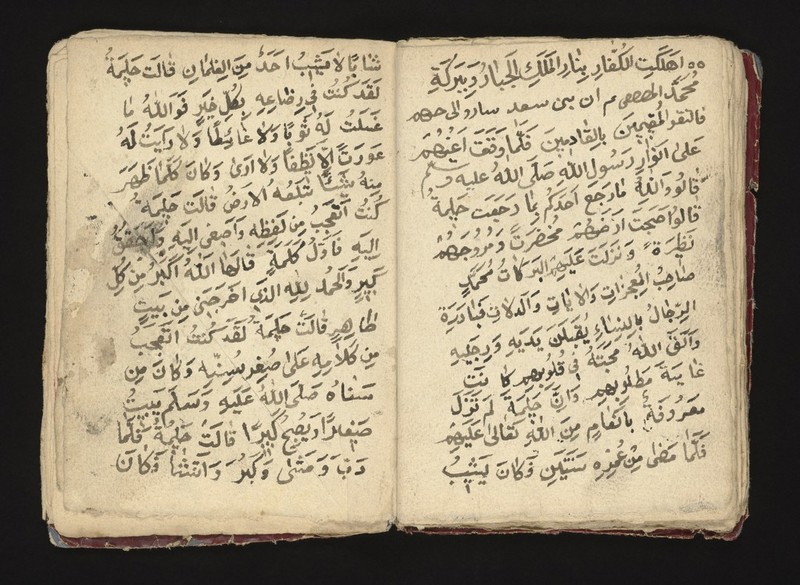 اهلكت الكفار بنار الملك الجبار وببركة
محمد المصطفى م ان بنى سعد ساروالى حيهم
فالتقو المقيمين بالقادمين فلما وقعت اعينهم
على انوار رسول الله صلى الله عليه وسلم
قالو والله ما رجع احدكم بما رجعت حليمة
قالوا صبحت ارضهم مخضرت ومروجهم
نظرة ونزلت عليهم البركات محمد
صاحب المعجزات والايات والدلات فبادرة
الرجال بالنساء يقبلن يديه ورجليه
والق الله محبته فى قلوبهم كانت
غاية مطلوبهم وان حليمة لم تزل
معروفة بانعام من الله تعالى عليهم
فلما مضى من عمره سنتين وكان يشب
شابا لا يشب احد من الغلمان قالت حليمة
لقد كنت فى رضاعه بكل خير فوالله ما
غسلت له ثوبا ولا غائطا ولا رايت له
عورت الا نظفا ولا ادى وكان كلما ظهر
منه شيئا تبلعه الارض قالت حليمة
كنت اتعجب من لفظه واصغى اليه
اليه فاول كلمة قالها الله اكبر من كل
كبير والحمد لله الذى اخرجنى من بيت
طاهر قالت حليمة لقد كنت اتعجب
من كلامه على صغير سنه وكان من
صلى الله عليه وسلم يبيت
صغيرا ويصبح كبيرا قالت حليمة فلما
دب ومشى وكبر وانتشا وكان